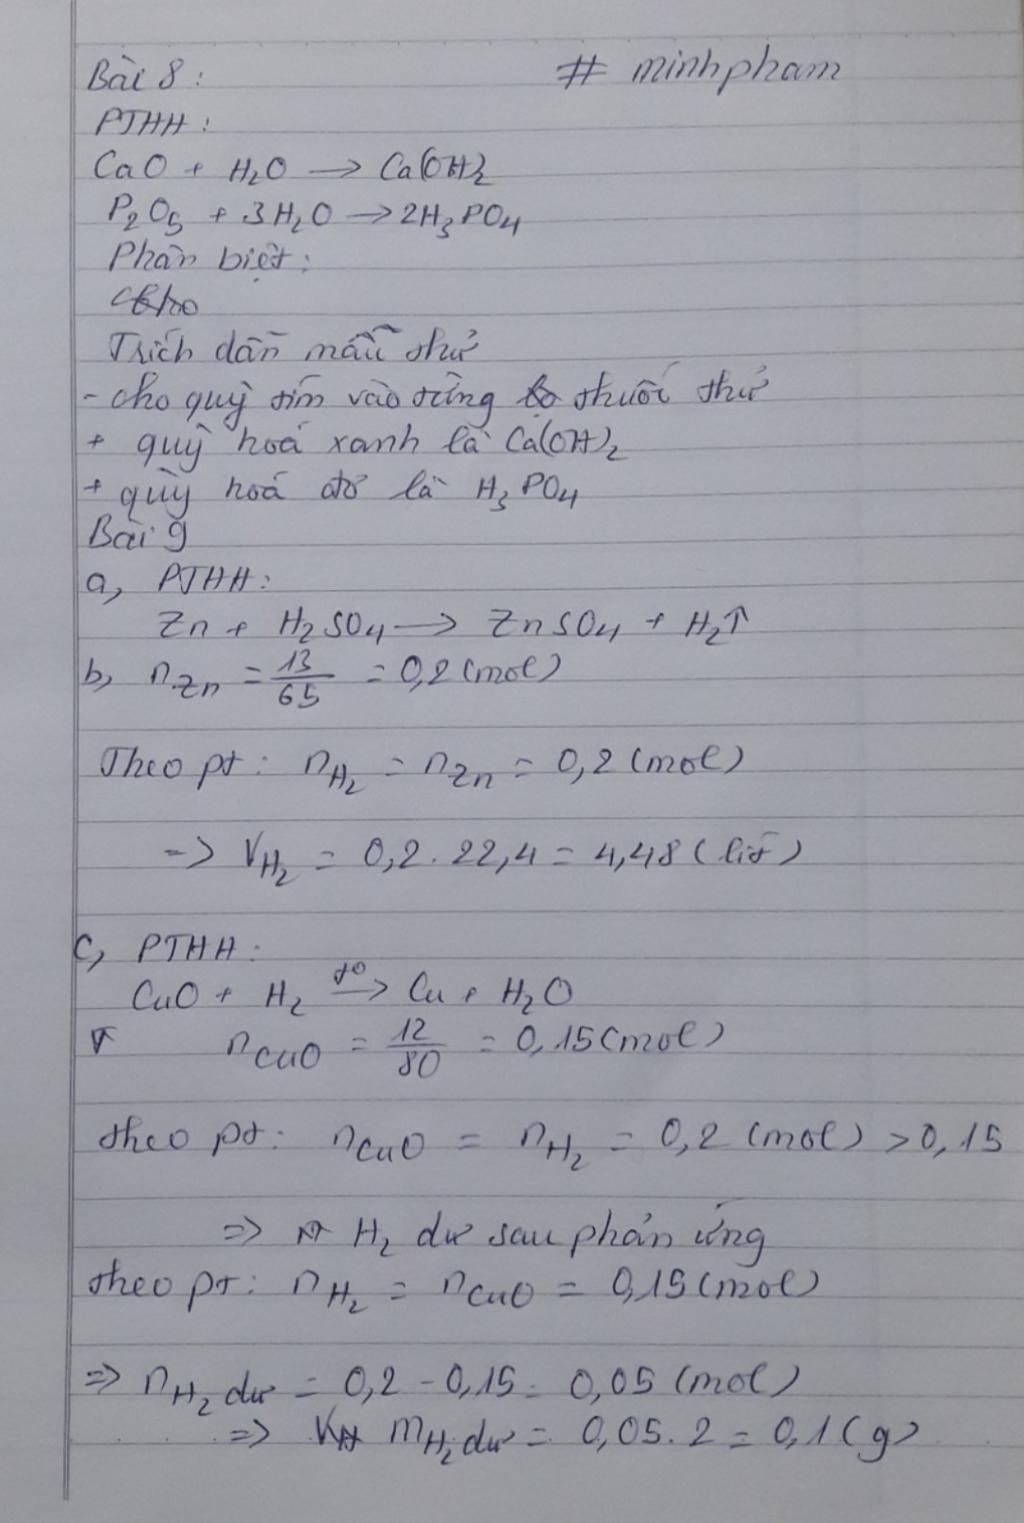 Bài 8: # minhpham
PTHH:
CaO + H₂O → Ca(OH)₂
P₂O₅ + 3H₂O → 2H₃PO₄
Phân biệt:
Trích dẫn mẫu thử
- cho quỳ tím vào từng thuốc thử
+ quỳ hoá xanh là Ca(OH)₂
+ quỳ hoá đỏ là H₃PO₄
Bài 9
a, PTHH:
Zn + H₂SO₄ → ZnSO₄ + H₂↑
b, nZn = 13/65 = 0,2 (mol)
Theo pt: nH₂ = nZn = 0,2 (mol)
=> VH₂ = 0,2 . 22,4 = 4,48 (lít)
c, PTHH:
CuO + H₂ t°→ Cu + H₂O
nCuO = 12/80 = 0,15 (mol)
theo pt: nCuO = nH₂ = 0,2 (mol) > 0,15
=> H₂ dư sau phản ứng
theo pt: nH₂ = nCuO = 0,15 (mol)
=> nH₂ dư = 0,2 - 0,15 = 0,05 (mol)
=> mH₂ dư = 0,05 . 2 = 0,1 (g)